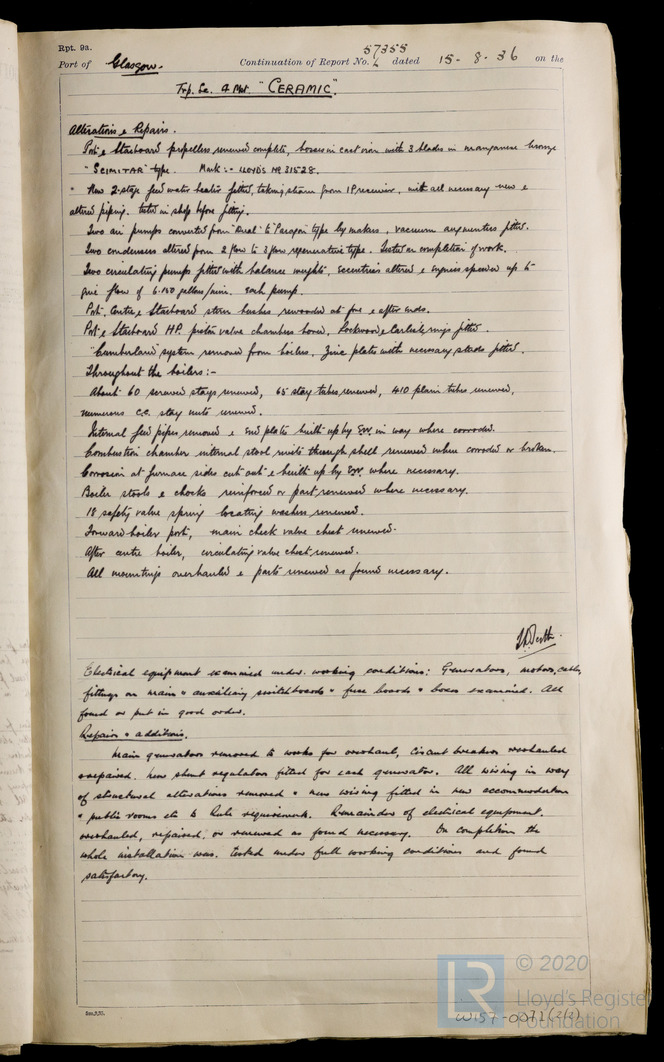 Rpt. 9a.
Port of Glasgow. Continuation of Report No. 57355 dated 15-8-36 on the
Trp. Sc. 4 Mst. "CERAMIC".
Alterations & Repairs.
Port & Starboard propellers renewed complete, bosses in cast iron with 3 blades in manganese bronze
"SCIMITAR" type. Mark:- LLOYD'S No 31528.
New 2-stage feed water heater fitted, taking steam from IP receiver, with all necessary new &
altered piping. Tested in shop before fitting.
Two air pumps converted from "Dual" to "Paragon" type by makers, vacuum augmenters fitted.
Two condensers altered from 2 flow to 3 flow regenerative type. Tested on completion of work.
Two circulating pumps fitted with balance weights, eccentrics altered & engines speeded up to
give flow of 6.150 gallons/min. each pump.
Port, Centre & Starboard stern bushes rewooded at fore & after ends.
Port & Starboard H.P. piston valve chambers bored, Lockwood & Carlisle rings fitted.
"Cumberland" system removed from boilers, zinc plates with necessary studs fitted.
Throughout the boilers:-
About 60 screwed stays renewed, 65 stay tubes renewed, 410 plain tubes renewed,
numerous c.c. stay nuts renewed.
Internal feed pipes removed & end plates built up by EW. in way where corroded.
Combustion chamber internal stool rivets through shell renewed where corroded or broken.
Corrosion at furnace sides cut out & built up by EW. where necessary.
Boiler stools & chocks reinforced or part renewed where necessary.
18 safety valve spring locating washers renewed.
Forward boiler port, main check valve chest renewed.
After centre boiler, circulating valve chest renewed.
All mountings overhauled & parts renewed as found necessary.
Electrical equipment examined under working conditions: Generators, motors, cables,
fittings on main & auxiliary switchboards & fuse boards & boxes examined. All
found or put in good order.
Repairs & additions.
Main generators removed to works for overhaul, Circuit breakers overhauled
& repaired. New shunt regulators fitted for each generator. All wiring in way
of structural alterations removed & new wiring fitted in new accommodation
& public rooms etc to Rule requirements. Remainder of electrical equipment.
overhauled, repaired, or renewed as found necessary. On completion the
whole installation was tested under full working conditions and found
satisfactory.
© 2020
LR
Lloyd's Register
Foundation
W157-0071(2/2)